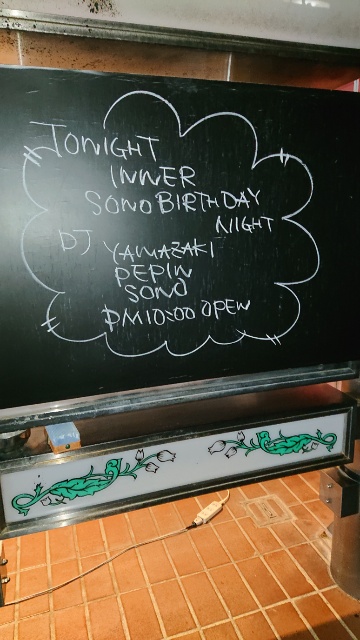 TONIGHT
INNER
SONO BIRTHDAY
NIGHT
DJ YAMAZAKI
PEPIN
SONO
PM10:00 OPEN